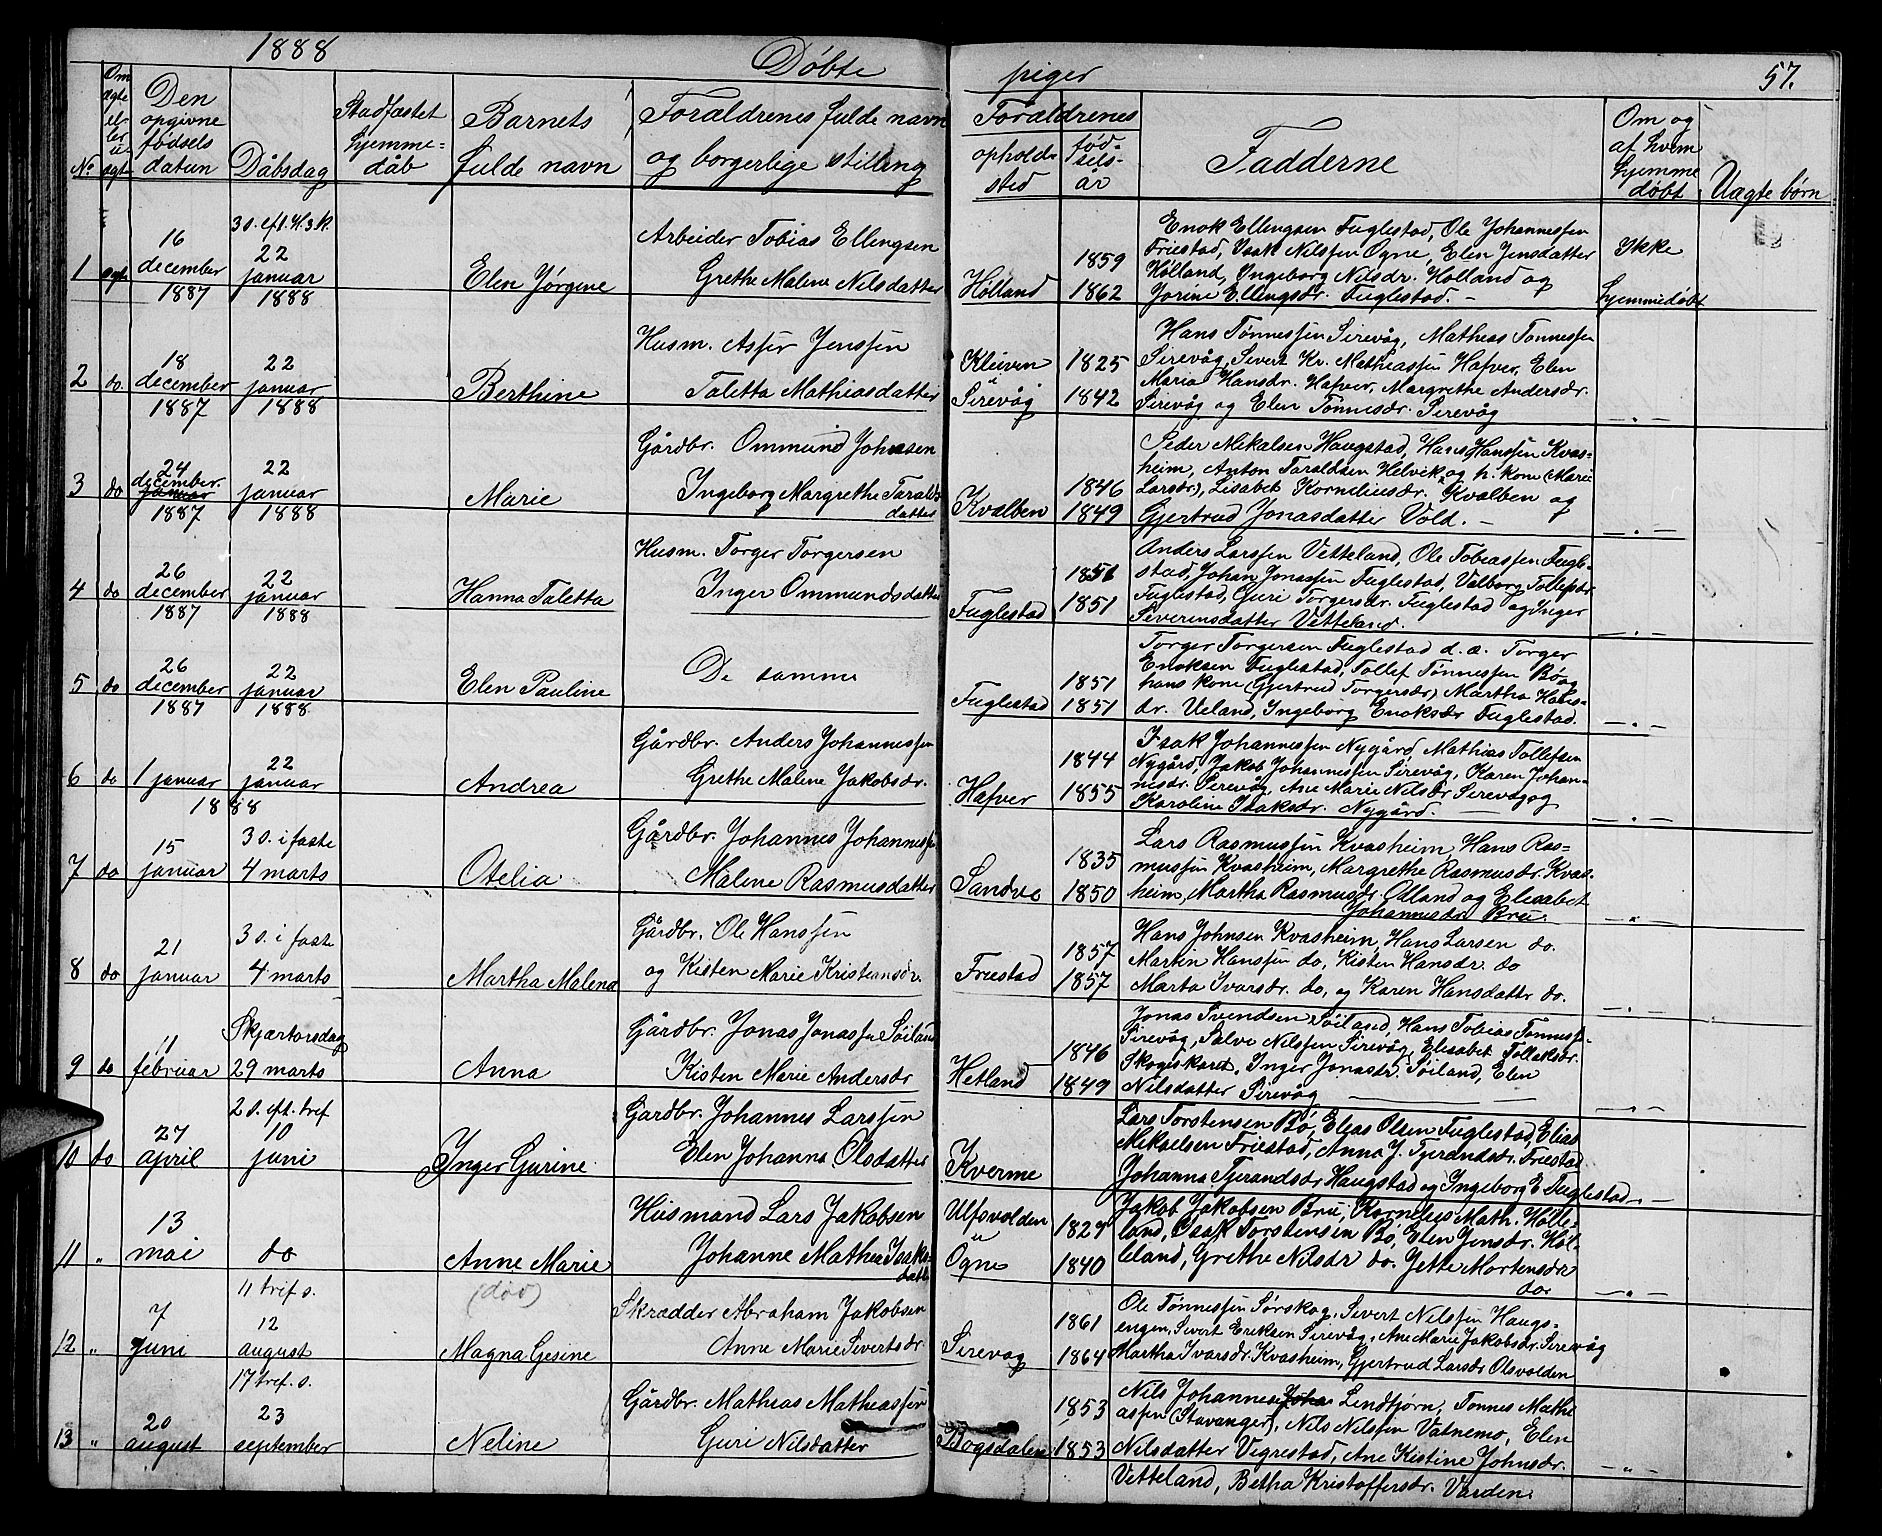 1888 Døbte piger 57.
No Om ægte eller uægte
Den opgivne fødsels datum
Dåbsdag
Stadfæstet hjemme= dåb
Barnets fulde navn
Forældrenes fulde navn og borgerlige stilling
Forældrenes opholds sted
fød= sels- år
Fadderne
Om og af hvem hjemme døbt
Uægte børn
1 ægt 16 december 1887
3 s. eft. H.3.K. 22 januar 1888
Elen Jørgine
Arbeider Tobias Ellengsen
Grethe Malene Nilsdatter
Hølland 1859 1862
Enok Ellengsen Fuglestad, Ole Johannessen
Friestad, Isak Nilssen Ogne, Elen Jensdatter
Hølland, Ingeborg Nilsdr. Hølland og
Jorine Ellengsdr. Fuglestad. —
Ikke hjemmedøbt
2 do 18 december 1887
22 januar 1888
Berthine
Husm. Asser Jenssen
Taletta Mathiasdatter
Kleiven u Sirevåg 1825 1842
Hans Tønnessen Sirevåg, Mathias Tønnessen
Sirevåg, Sivert Kr. Mathiassen Hafver, Elen
Maria Hansdr. Hafver, Margrethe Andersdr.
Sirevåg og Elen Tønnesdr. Sirevåg
— " —
3 do 24 december januar 1887
22 januar 1888
Marie
Gårdbr. Ommund Johnsen
Ingeborg Margrethe Taralds datter
Kvalben 1846 1849
Peder Mikalsen Haugstad, Hans Hanssen Kvas=
heim, Anton Taraldsen Helvik og h. kone (Marie
Larsdr.), Lisabet Korneliusdr. Kvalben og
Gjertrud Jonasdatter Vold. —
— " —
4 do 26 december 1887
22 januar 1888
Hanna Taletta
Husm. Torger Torgersen
Inger Ommundsdatter
Fuglestad 1851 1851
Anders Larssen Vetteland, Ole Tobiassen Fugle=
stad, Johan Jonassen Fuglestad, Valborg Tollefsdr.
Fuglestad, Guri Torgersdr. Fuglestad og Inger
Severinsdatter Vetteland.
— " —
5 do 26 december 1887
22 januar 1888
Elen Pauline
De samme
Fuglestad 1851 1851
Torger Torgersen Fuglestad d. æ. Torger
Enoksen Fuglestad, Tollef Tønnessen Bø og
hans kone (Gjertrud Torgersdr) Martha Hans=
dr. Ueland, Ingeborg Enoksdr Fuglestad.
— " —
6 do 1 januar 1888
22 januar
Andrea
Gårdbr. Anders Johannessen
Grethe Malene Jakobsdr.
Hafver 1844 1855
Isak Johannessen Nygård Mathias Tollefsen
Nygård, Jakob Johannessen Sirevåg, Karen Johan=
nesdr. Sirevåg, Ane Marie Nilsdr Sirevåg og
Karoline Isaksdr. Nygård. —
— " —
7 do 15 januar
3 s. i faste 4 marts
Otelia
Gårdbr. Johannes Johannessen
Malene Rasmusdatter
Sandve 1835 1850
Lars Rasmussen Kvasheim Hans Ras=
mussen Kvasheim, Margrethe Rasmusdr. Kvas=
heim, Martha Rasmusdr. Ødland og Elisabet
Johannesdr Bru.
— " —
8 do 21 januar
3 s. i faste 4 marts
Martha Malena
Gårdbr. Ole Hanssen
og Kisten Marie Kristiansdr.
Friestad 1857 1857
Hans Johnsen Kvasheim, Hans Larsen do.
Martin Hanssen do, Kisten Hansdr. do
Marta Ivarsdr. do, og Karen Hansdattr do.
— " —
9 do 11 februar
Skjærtorsdag 29 marts
Anna
Gårdbr. Jonas Jonassen Söiland
Kisten Marie Andersdr
Hetland 1846 1849
Jonas Svendsen Söiland, Hans Tobias Tønness=
Sirevåg, Salve Nilssen Sirevåg, Elisabet Tollaksdr.
Skogeskaret, Inger Jonasdr. Söiland, Elen
Nilsdatter Sirevåg —
— " —
10 do 27 april
2 s. eft. tref. 10 juni
Inger Gurine
Gårdbr. Johannes Larssen
Elen Johanna Olsdatter
Kverme
Lars Torstensen Bø, Elias Olsen Fuglestad, Elias
Mikaelsen Friestad, Anna J. Tjerandsdr. Friestad
Johanna Tjerandsdr Haugstad og Ingeborg E. Fuglestad. " —
11 " 13 mai
do
Anne Marie
(død)
Husmand Lars Jakobsen
Johanne Mathea Isaks datter
Ulfsvolden u Ogne 1829 1840
Jakob Jakobsen Bru, Kornelius Math. Hölle=
land, Isak Torstensen Bø, Elen Jensdr. Höl=
leland, Grethe Nilsdr do. Jette Mortensdr
do.
— " —
12 " 7 juni
11 tref s. 12 august
Magna Gesine
Skrædder Abraham Jakobsen
Anne Marie Sivertsdr.
Sirevåg 1861 1864
Ole Tønnessen Sørskog, Sivert Nilssen Haugs=
engen, Sivert Eriksen Sirevåg, Ane Marie Jakobsdr. Sirevåg
Martha Ivarsdr. Kvasheim, Gjertrud Larsdr Olsvolden
13 " 20 august
17 tref. s. 23 september
Neline
Gårdbr. Mathias Mathiassen
Guri Nilsdatter
Bogsdalen 1853 1853
Nils Johannes Lindtjørn, Tønnes Mathi
assen (Stavanger), Nils Nilssen Vatnemo, Elen
Nilsdatter Vigrestad, Ane Kistine Johnsdr.
Vetteland, Betha Kristoffersdr. Varden.
— " —